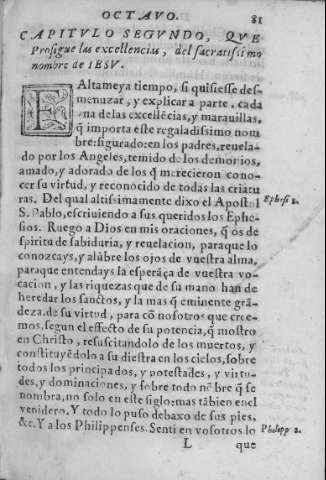 OCTAVO.
81
CAPITVLO SEGVNDO, QVE
Prosigue las excellencias, del sacratissimo
nombre de IESV.
FAltameya tiempo, si quisiesse des-
menuzar, y explicar a parte, cada
vna delas excellẽcias, y marauillas,
q̃ importa este regaladissimo nom
bre: figurado: en los padres, reuela-
do por los Angeles, temido de los demonios,
amado, y adorado de los q̃ merecieron cono-
cer su virtud, y reconocido de todas las criatu
ras. Del qual altissimamente dixo el Apostol
Ephesi 1.
S. Pablo, escriuiendo a sus queridos los Ephe-
sios. Ruego a Dios en mis oraciones, q̃ os de
spiritu de sabiduria, y reuelacion, paraque lo
conozcays, y alũbre los ojos de vuestra alma,
paraque entendays la esperãça de vuestra vo-
cacion, y las riquezas que de su mano han de
heredar los sanctos, y la mas q̃ eminente grã-
deza. de su virtud, para cõ nosotros que cree-
mos, segun el effecto de su potencia, q̃ mostro
en Christo, resuscitandolo de los muertos, y
constituyẽdolo a su diestra en los cielos, sobre
todos los principados, y potestades, y virtu-
des, y dominaciones, y sobre todo nõbre q̃ se
nombra, no solo en este siglo: mas tãbien enel
venidero. Y todo lo puso debaxo de sus pies,
&c. Y a los Philippenses. Senti en vosotros lo
Philipp 2.
L que